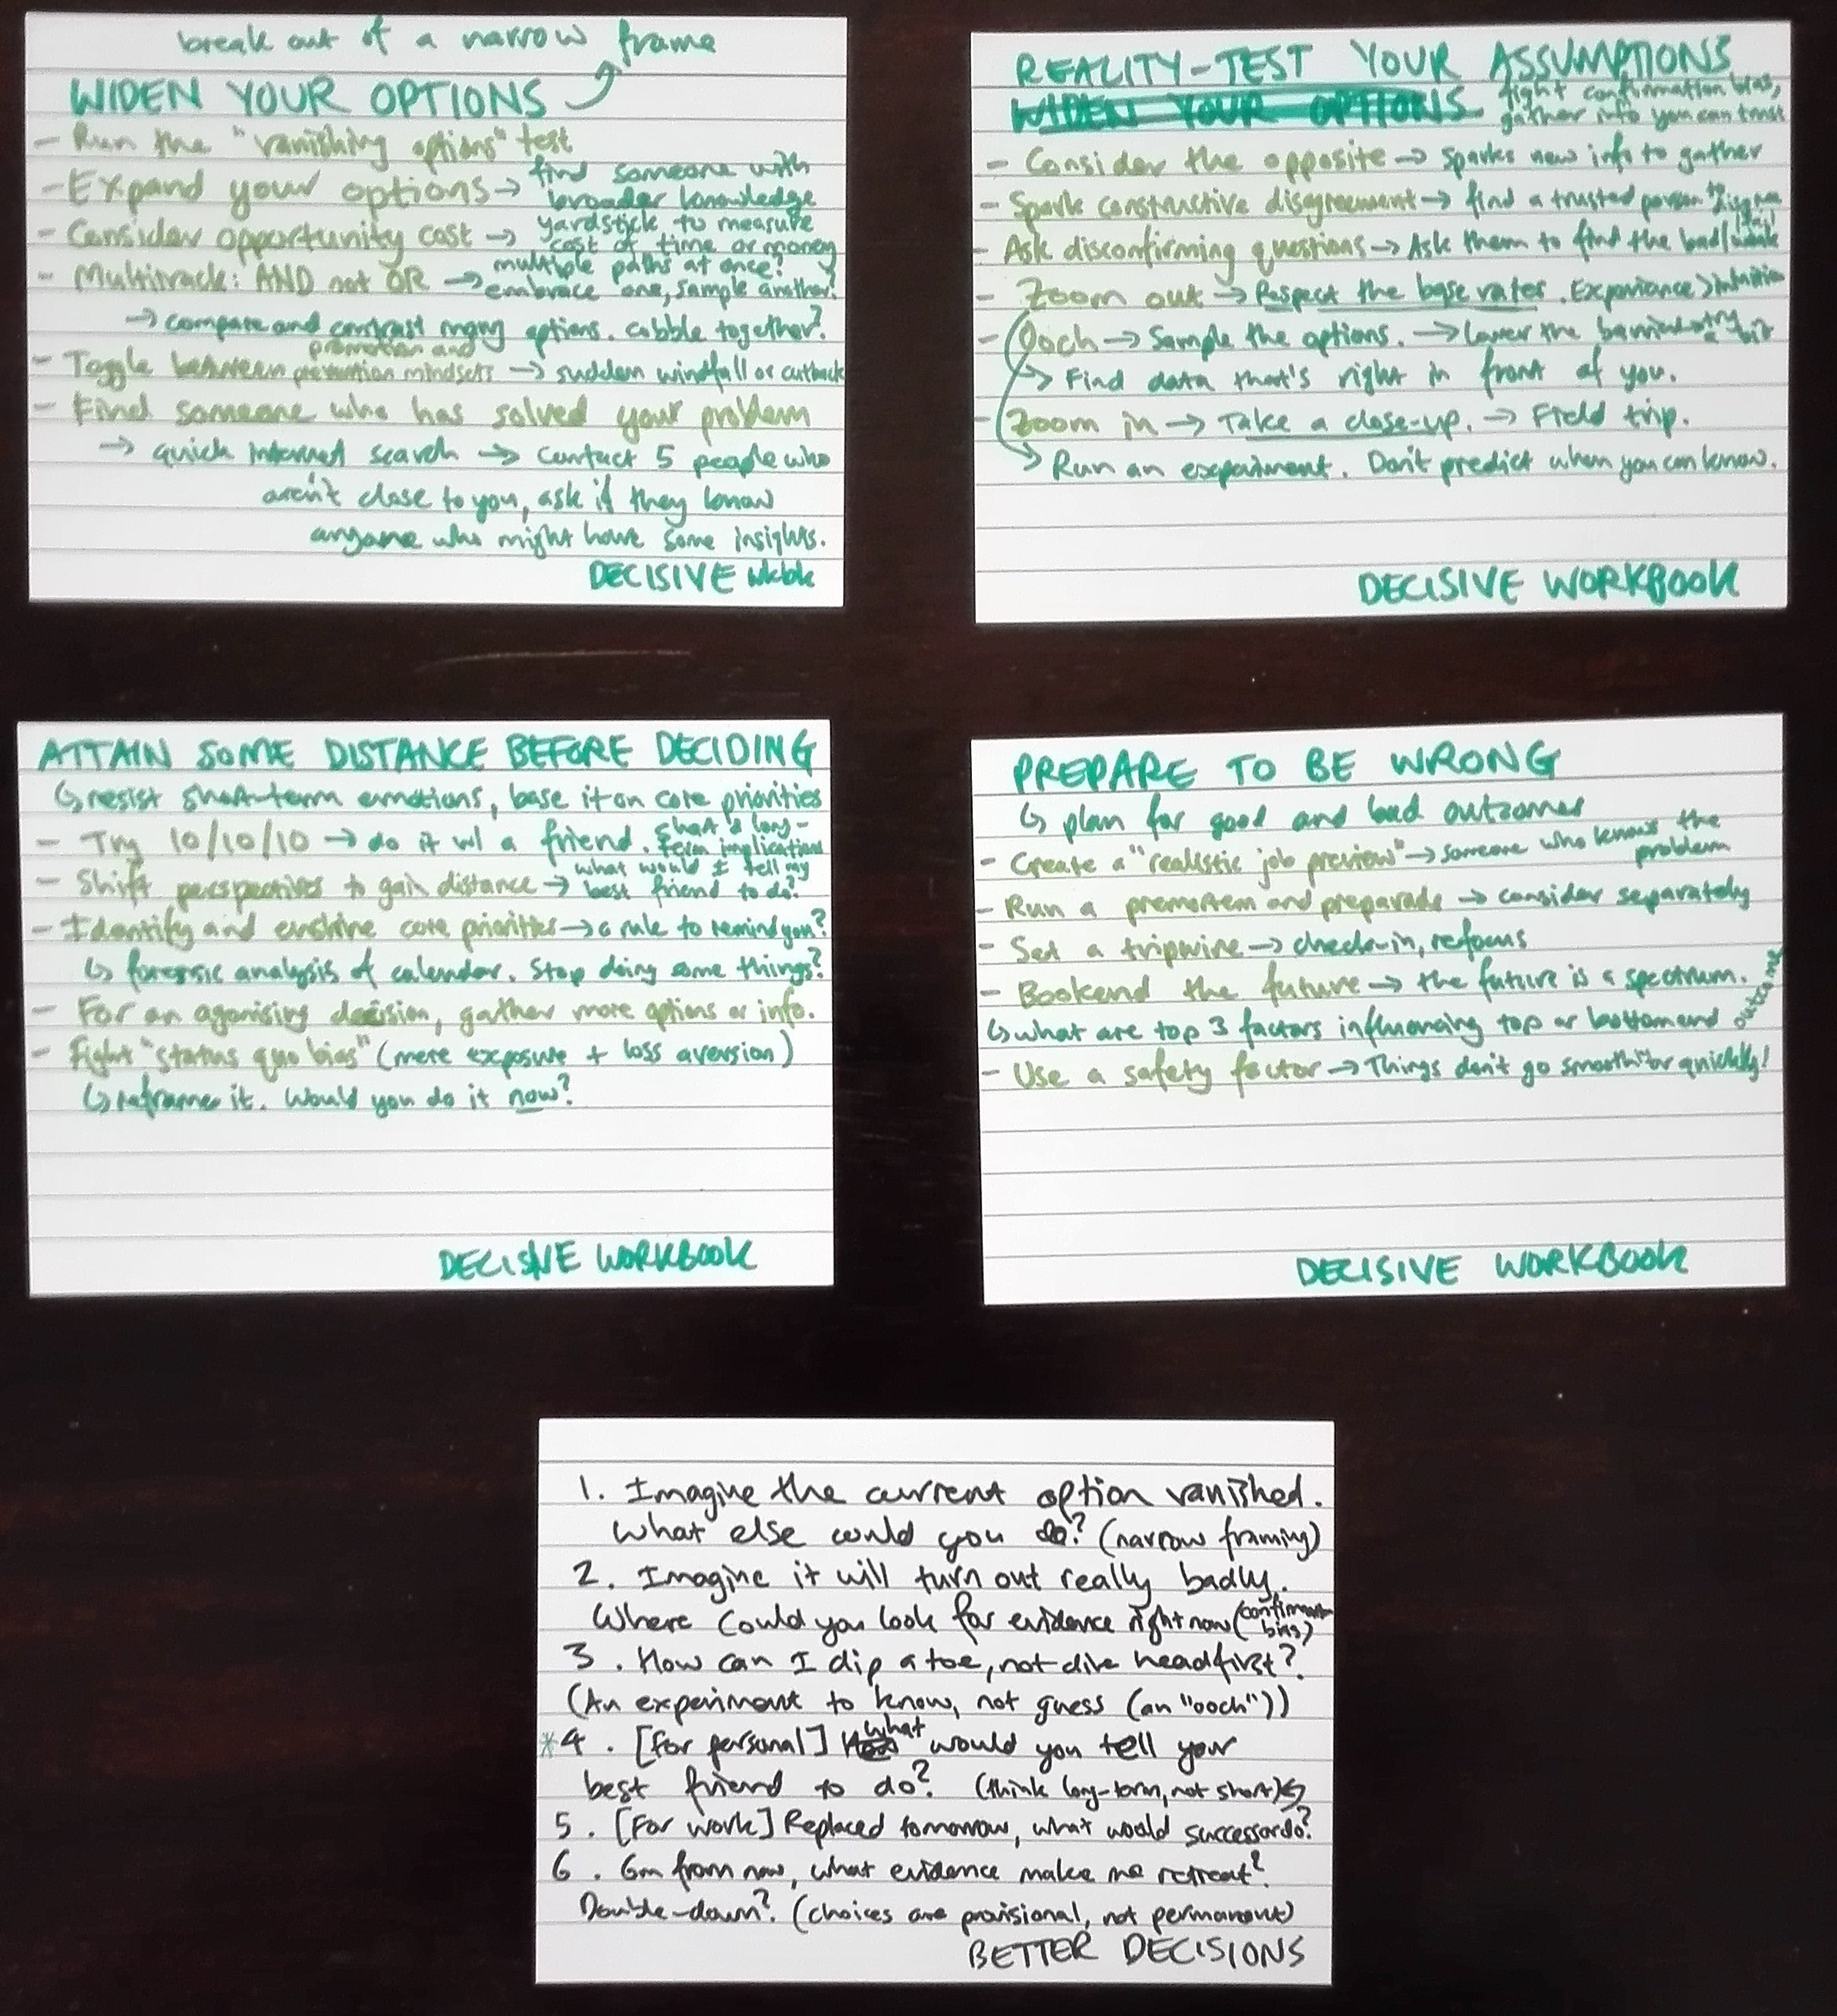 break out of a narrow frame
WIDEN YOUR OPTIONS
- Run the "vanishing options" test
- Expand your options → find someone with
broader knowledge
- Consider opportunity cost → yardstick to measure
cost of time or money
- Multitrack: AND not OR → multiple paths at once?
embrace one, sample another?
→ compare and contrast many options. Cobble together?
- Toggle between promotion and
prevention mindsets → sudden windfall or cutback
- Find someone who has solved your problem
→ quick internet search → contact 5 people who
aren't close to you, ask if they know
anyone who might have some insights.
DECISIVE wkbk
REALITY-TEST YOUR ASSUMPTIONS
WIDEN YOUR OPTIONS fight confirmation bias,
gather info you can trust
- Consider the opposite → sparks new info to gather
- Spark constructive disagreement → find a trusted person to
- Ask disconfirming questions → Ask them to find the bad/weak
- Zoom out → Respect the base rates. Experience > intuition
- Ooch → Sample the options. → Lower the barrier
→ Find data that's right in front of you.
- Zoom in → Take a close-up. → Field trip.
→ Run an experiment. Don't predict when you can know.
DECISIVE WORKBOOK
ATTAIN SOME DISTANCE BEFORE DECIDING
↳ resist short-term emotions, base it on core priorities
- Try 10/10/10 → do it w/ a friend. What's long-
term implication
- Shift perspectives to gain distance → what would I tell my
best friend to do?
- Identify and enshrine core priorities → a rule to remind you?
↳ forensic analysis of calendar. Stop doing some things?
- For an agonising decision, gather more options or info.
- Fight "status quo bias" (mere exposure + loss aversion)
↳ reframe it. Would you do it now?
DECISIVE WORKBOOK
PREPARE TO BE WRONG
↳ plan for good and bad outcomes
- Create a "realistic job preview" → someone who knows the
problem
- Run a premortem and preparade → consider separately
- Set a tripwire → check-in, refocus
- Bookend the future → the future is a spectrum.
↳ what are top 3 factors influencing top or bottom end outcome
- Use a safety factor → Things don't go smooth or quickly!
DECISIVE WORKBOOK
1. Imagine the current option vanished.
What else could you do? (narrow framing)
2. Imagine it will turn out really badly.
Where could you look for evidence right now (confirmation
bias)
3. How can I dip a toe, not dive headfirst?
(An experiment to know, not guess (an "ooch"))
*4. [For personal] What would you tell your
best friend to do? (think long-term, not short)
5. [For work] Replaced tomorrow, what would successor do?
6. 6m from now, what evidence make me retreat?
Double-down? (choices are provisional, not permanent)
BETTER DECISIONS